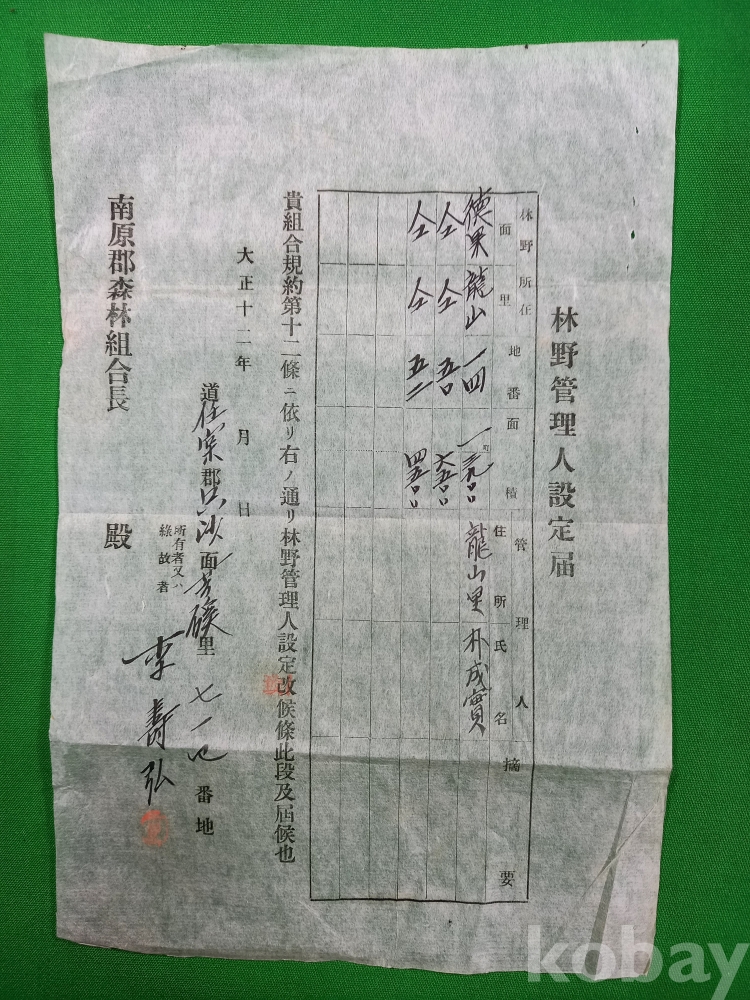 林野管理人設定届
林野所在 地番 面積 管理人 摘要
面 里 住所 氏名
德果 龍山 一四 町 龍山里 朴成實
仝 仝 五〇
仝 仝 五二
貴組合規約第十二條ニ依リ右ノ通リ林野管理人設定改候條此段及届候也
大正十二年 月 日
道任實郡只沙面芳磎里七一七番地
所有者又ハ
緣故者
李壽弘
南原郡森林組合長 殿
kobay